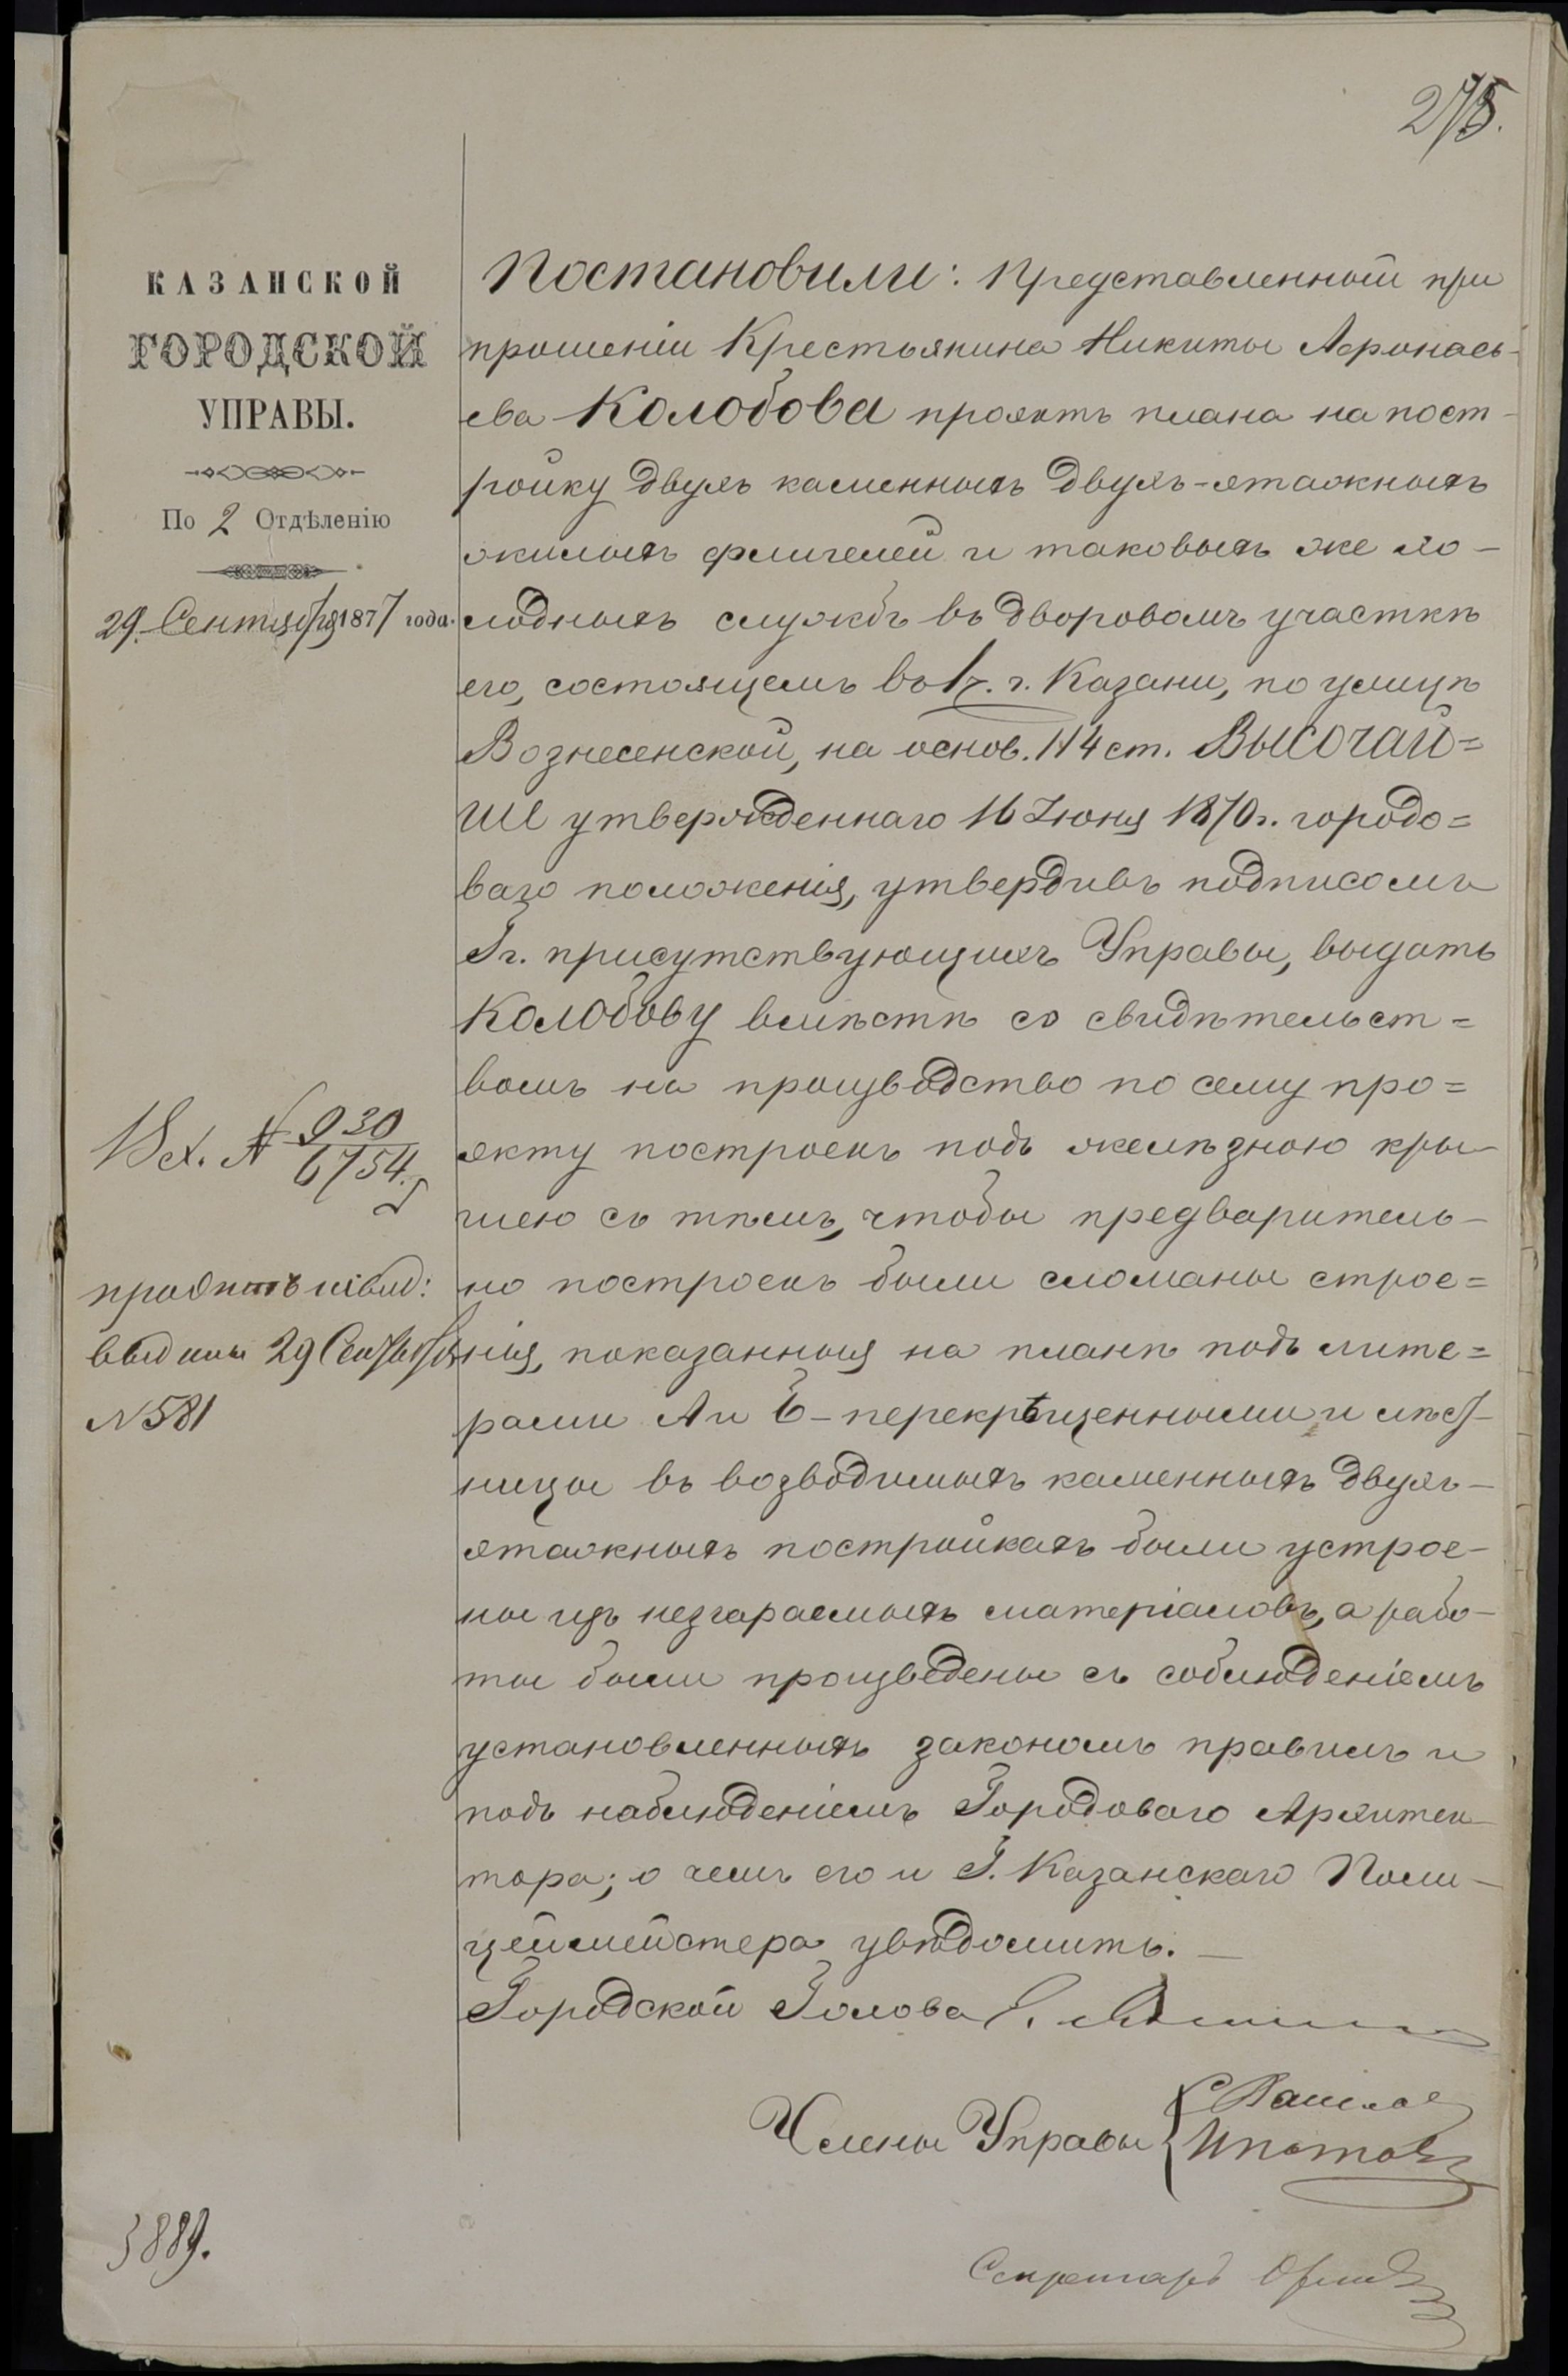 275.
КАЗАНСКОЙ
ГОРОДСКОЙ
УПРАВЫ.
По 2 Отдѣленію
29 Сентября 1877 года.
Вх. № 930
6754
проэктъ и свид:
выданы 29 Сентября
№ 581
3889.
Постановили: Представленный при
прошеніи Крестьянина Никиты Афонась-
ева Колобова проэктъ плана на пост-
ройку двухъ каменныхъ двухъ-этажныхъ
жилыхъ флигелей и таковыхъ же хо-
лодныхъ службъ въ дворовомъ участкѣ
его, состоящемъ въ 1 ч. г. Казани, по улицѣ
Вознесенской, на основ. 114 ст. ВЫСОЧАЙ=
ШЕ утвержденнаго 16 Іюня 1870 г. городо=
ваго положенія, утвердивъ подписомъ
Гг. присутствующихъ Управы, выдать
Колобову вмѣстѣ со свидѣтельст=
вомъ на производство по сему про=
экту построекъ подъ желѣзною кры-
шею съ тѣмъ, чтобы предваритель-
но построекъ были сломаны строе=
нія, показанныя на планѣ подъ лите=
рами А и Б - перекрещенными и лѣст-
ницы въ возводимыхъ каменныхъ двухъ-
этажныхъ постройкахъ были устрое-
ны изъ незгараемыхъ матеріаловъ, а рабо-
ты были произведены съ соблюденіемъ
установленныхъ закономъ правилъ и
подъ наблюденіемъ Городоваго Архитек-
тора; о чемъ его и Г. Казанскаго Поли-
цеймейстера увѣдомить.
Городской Голова
Члены Управы
Ипатовъ
Секретарь